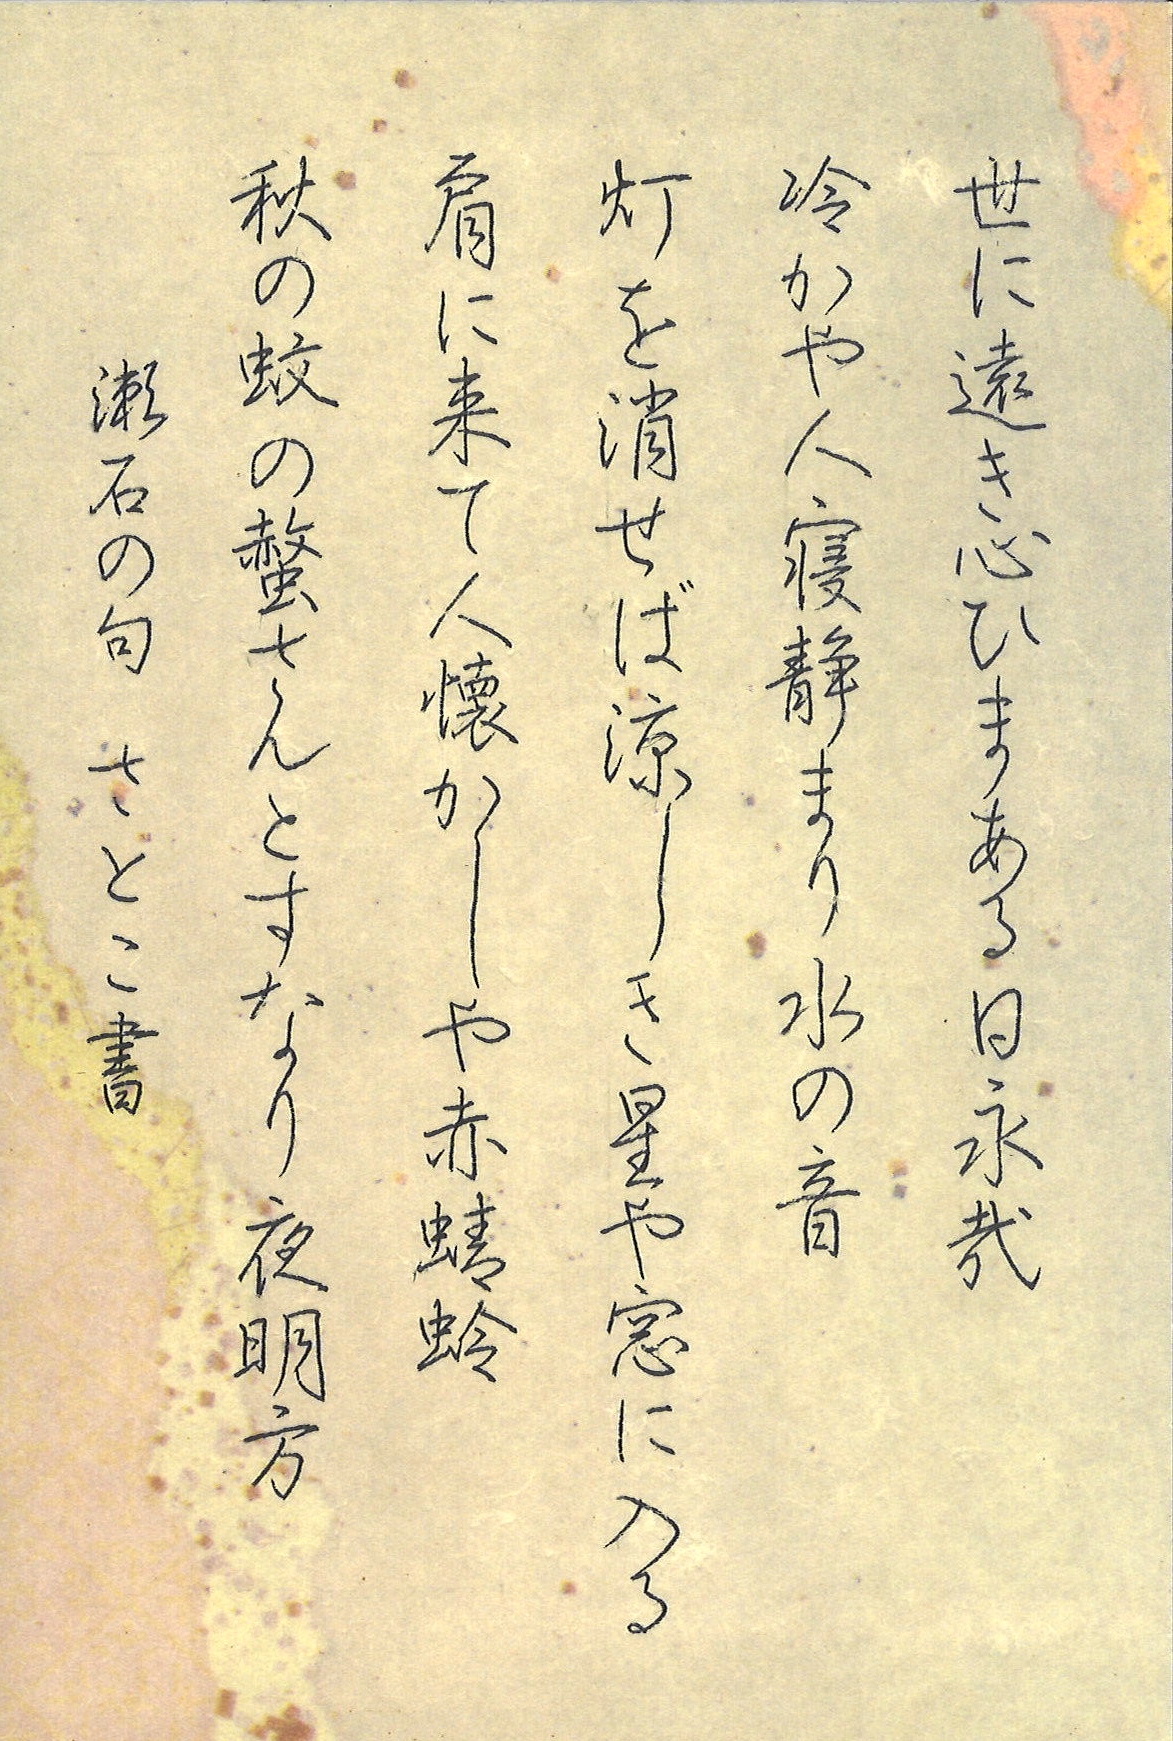 世に遠き心ひまある日永哉
冷かや人寝静まり水の音
灯を消せば涼しき星や窓に入る
肩に来て人懐かしや赤蜻蛉
秋の蚊の螫さんとすなり夜明方
漱石の句 さとこ書